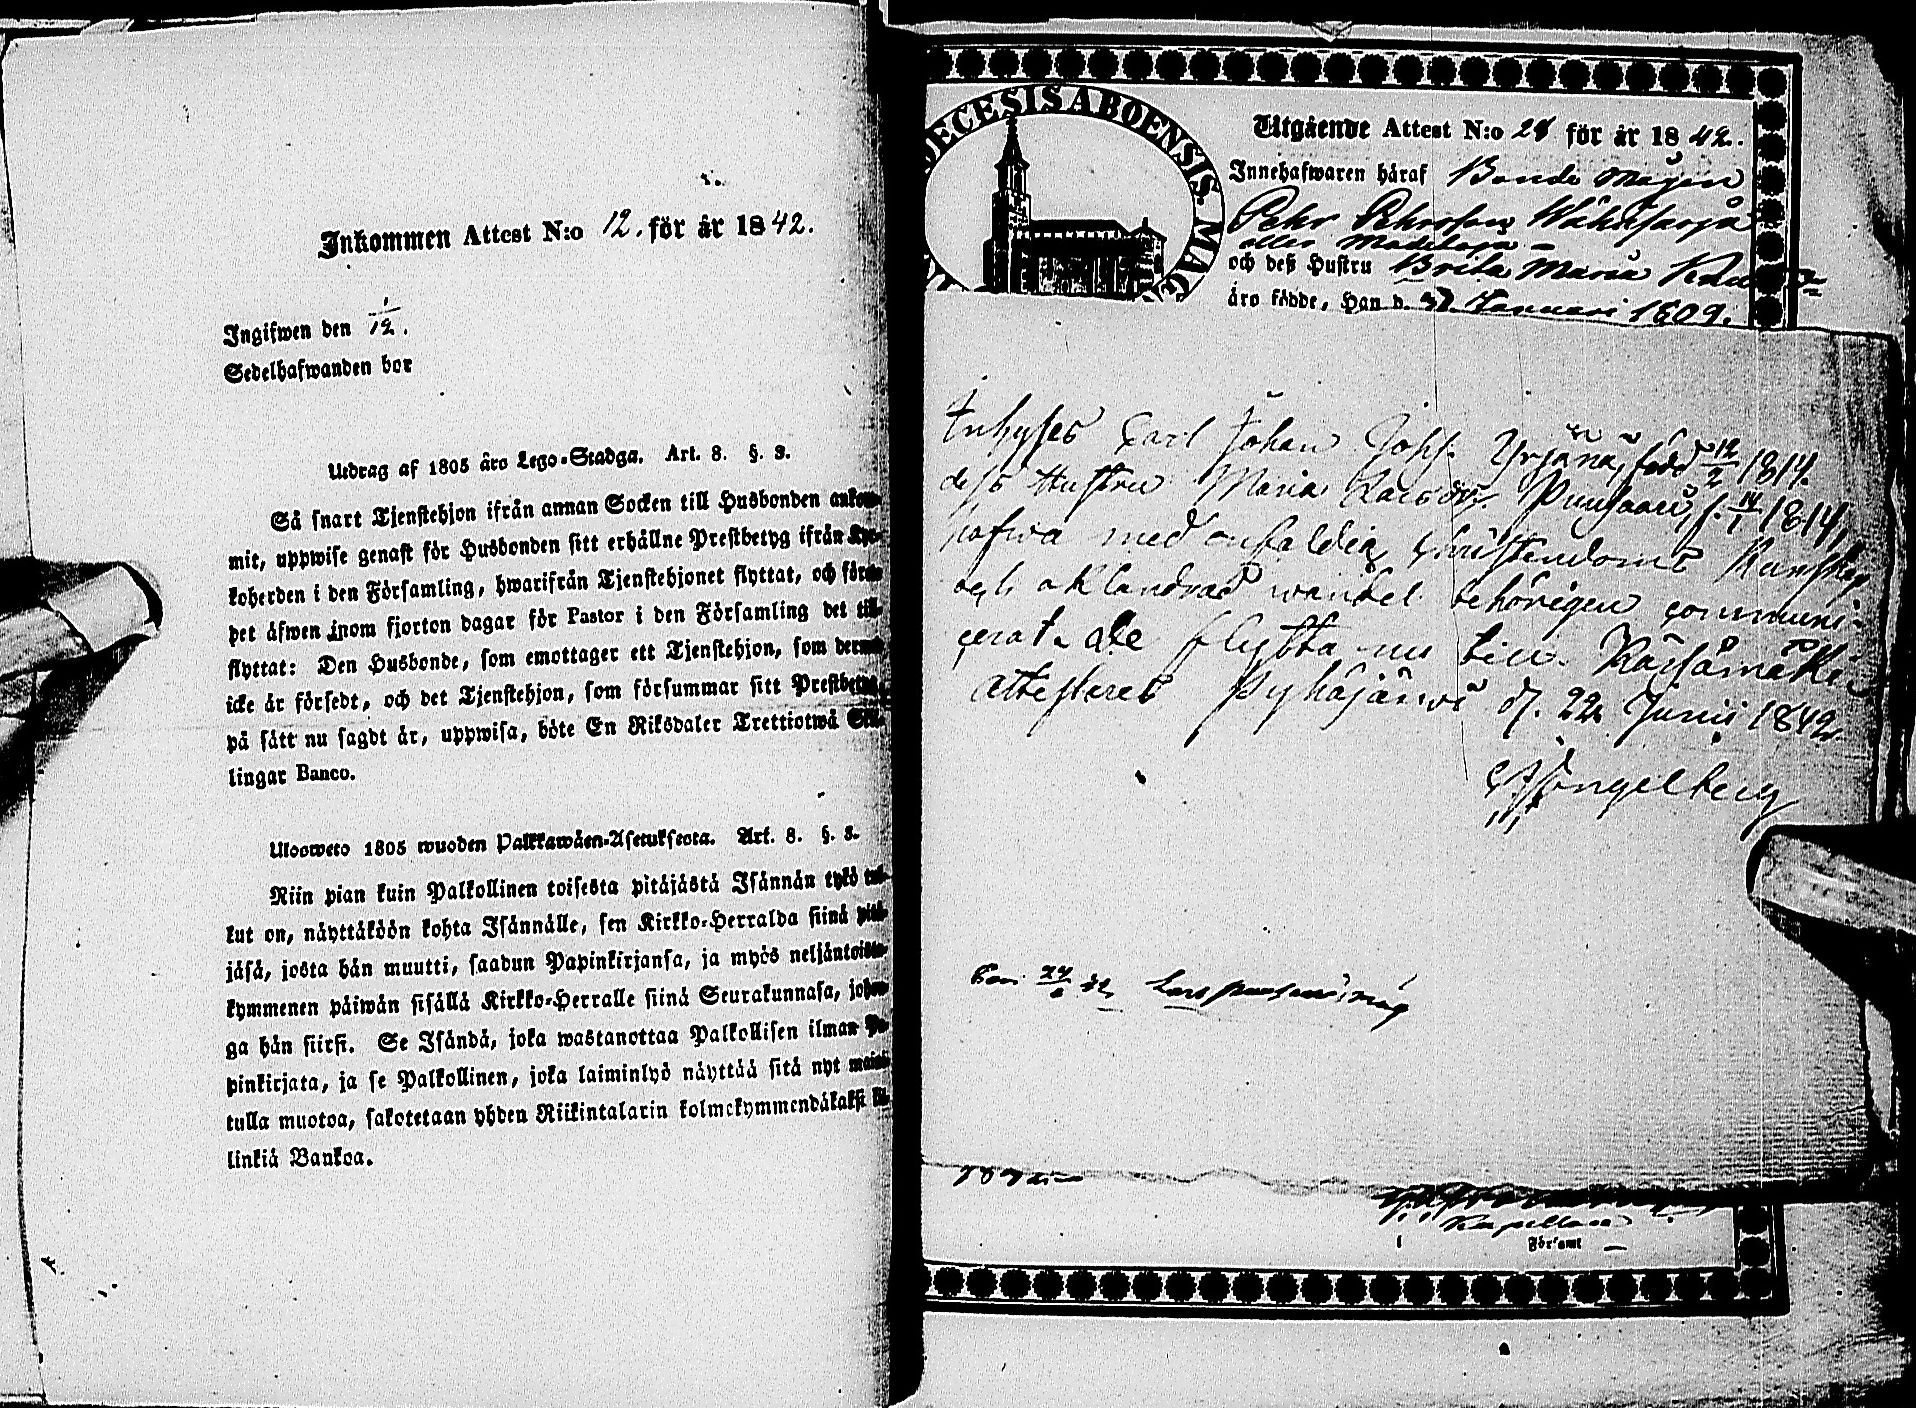 Inkommen Attest N:o 12. för år 1842.
Ingifwen den 1/12.
Sedelhafwanden bor
Utdrag af 1805 års Lego-Stadga. Art. 8. §. 3.
Så snart Tjenstehjon ifrån annan Socken till Husbonden ankom-
mit, uppwise genast för Husbonden sitt erhållne Prestbetyg ifrån Kyr-
koherden i den Församling, hwarifrån Tjenstehjonet flyttat, och förete
det äfwen inom fjorton dagar för Pastor i den Församling det till-
flyttat: Den Husbonde, som emottager ett Tjenstehjon, som dermed
icke är försedt, och det Tjenstehjon, som försummar sitt Prestbetyg,
på sätt nu sagdt är, uppwisa, böte En Riksdaler Trettiotwå Skil-
lingar Banco.
Ulosweto 1805 wuoden Palkkawäen-Asetuksesta. Art. 8. §. 3.
Niin pian kuin Palkollinen toisesta pitäjästä Isännän tykö tul-
lut on, näyttäköön kohta Isännälle, sen Kirkko-Herralda siinä pitä-
jäsä, josta hän muutti, saadun Papinkirjansa, ja myös neljäntoista-
kymmenen päiwän sisällä Kirkko-Herralle siinä Seurakunnasa, johon-
ga hän siirsi. Se Isändä, joka wastanottaa Palkollisen ilman Pa-
pinkirjata, ja se Palkollinen, joka laiminlyö näyttää sitä nyt maini-
tulla muotoa, sakotetaan yhden Riikintalarin kolmekymmendäkaksi kil-
linkiä Bankoa.
DIECESIS ABOENSIS. MAG
Utgående Attest N:o 28 för år 1842.
Innehafwaren häraf Bonde Mågen
Pehr Pehrsson
eller
och deß Hustru Brita Maria
äro födde, Han d. Januari 1809.
Inhyses Carl Johan Johss. Yrjänä, född 12/2 1814.
dess Hustru Maria Larsdr. Puusaari, f. 14/1 1814,
hafwa med enfaldig Christendoms Kunskap
och oklandrad wandel behörigen communi-
cerat. De flytta nu till Kärsämäki.
Attesteras Pyhäjärwi d. 22 Junii 1842.
Engelberg
27/6 42 Lars
Kapellan
Förs:amt